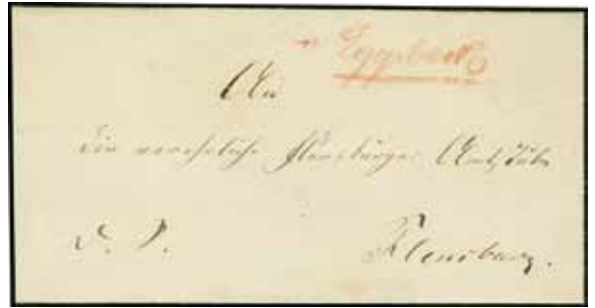 v. Eggebeck
An
die verehrliche Flensburger Amtstube
d. S.
Flensburg.